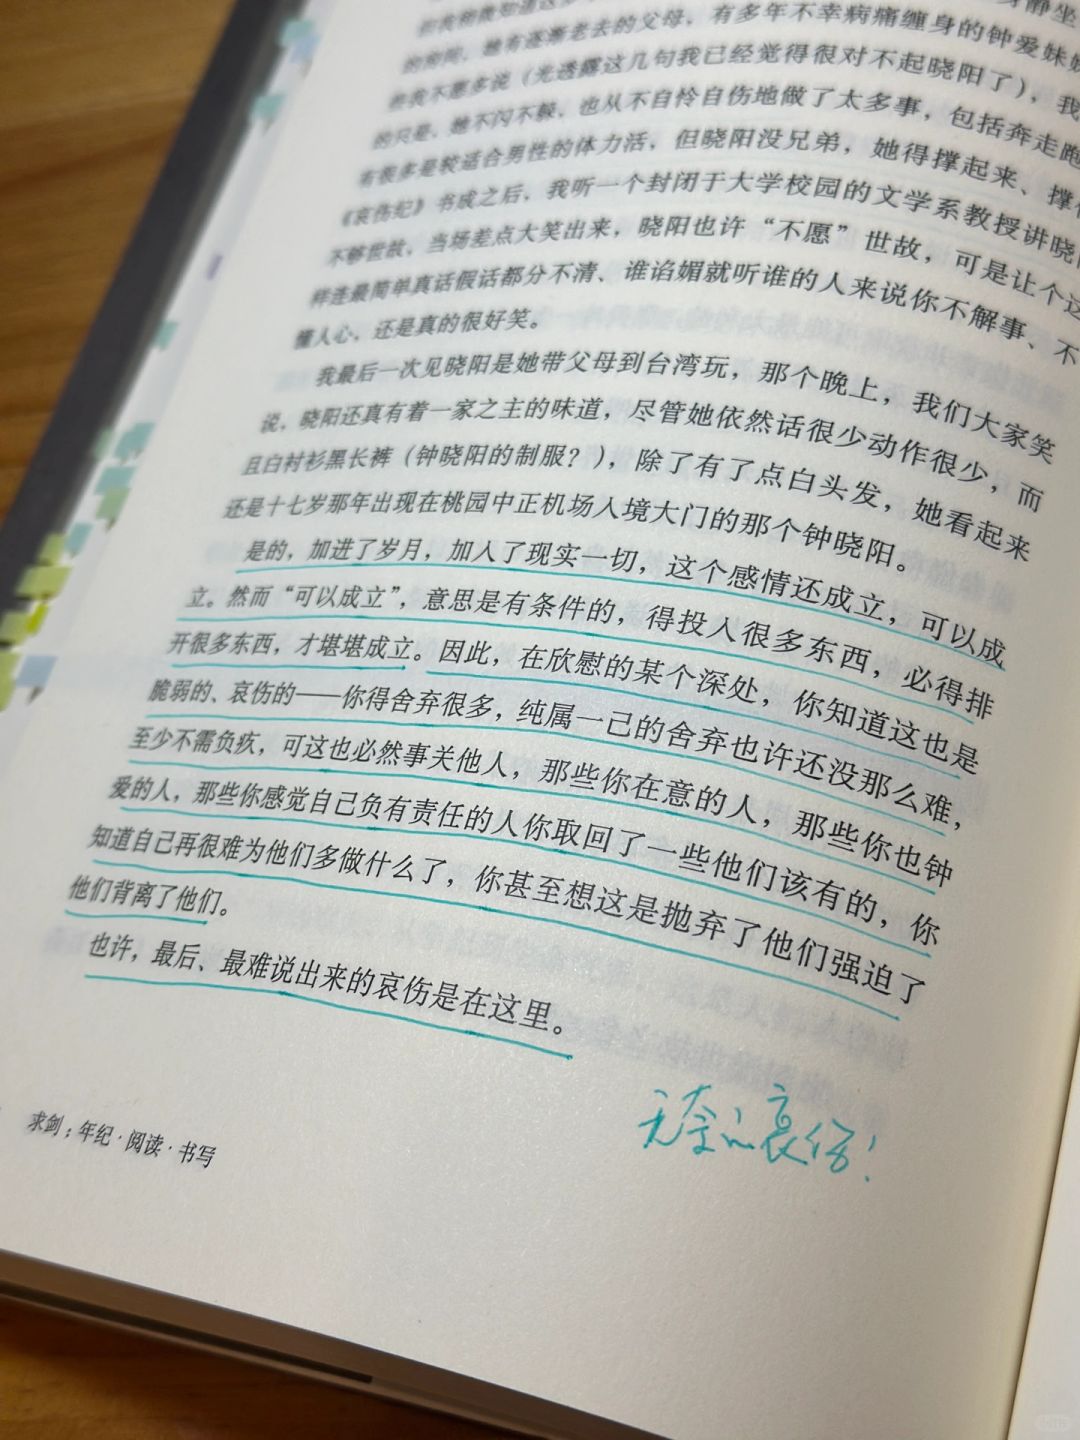 静坐
的房间，她有逐渐老去的父母，有多年不幸病痛缠身的钟爱妹妹
些我不愿多说（光透露这几句我已经觉得很对不起晓阳了），我
的只是，她不闪不躲，也从不自怜自伤地做了太多事，包括奔走跑
有很多是较适合男性的体力活，但晓阳没兄弟，她得撑起来、撑
《哀伤纪》书成之后，我听一个封闭于大学校园的文学系教授讲晓阳
不够世故，当场差点大笑出来，晓阳也许“不愿”世故，可是让个这
样连最简单真话假话都分不清、谁谄媚就听谁的人来说你不解事、不
懂人心，还是真的很好笑。
我最后一次见晓阳是她带父母到台湾玩，那个晚上，我们大家笑
说，晓阳还真有着一家之主的味道，尽管她依然话很少动作很少，而
且白衬衫黑长裤（钟晓阳的制服？），除了有了点白头发，她看起来
还是十七岁那年出现在桃园中正机场入境大门的那个钟晓阳。
是的，加进了岁月，加入了现实一切，这个感情还成立，可以成
立。然而“可以成立”，意思是有条件的，得投入很多东西，必得排
开很多东西，才堪堪成立。因此，在欣慰的某个深处，你知道这也是
脆弱的、哀伤的——你得舍弃很多，纯属一己的舍弃也许还没那么难，
至少不需负疚，可这也必然事关他人，那些你在意的人，那些你也钟
爱的人，那些你感觉自己负有责任的人你取回了一些他们该有的，你
知道自己再很难为他们多做什么了，你甚至想这是抛弃了他们强迫了
他们背离了他们。
也许，最后、最难说出来的哀伤是在这里。
无奈的哀伤！
求剑：年纪·阅读·书写